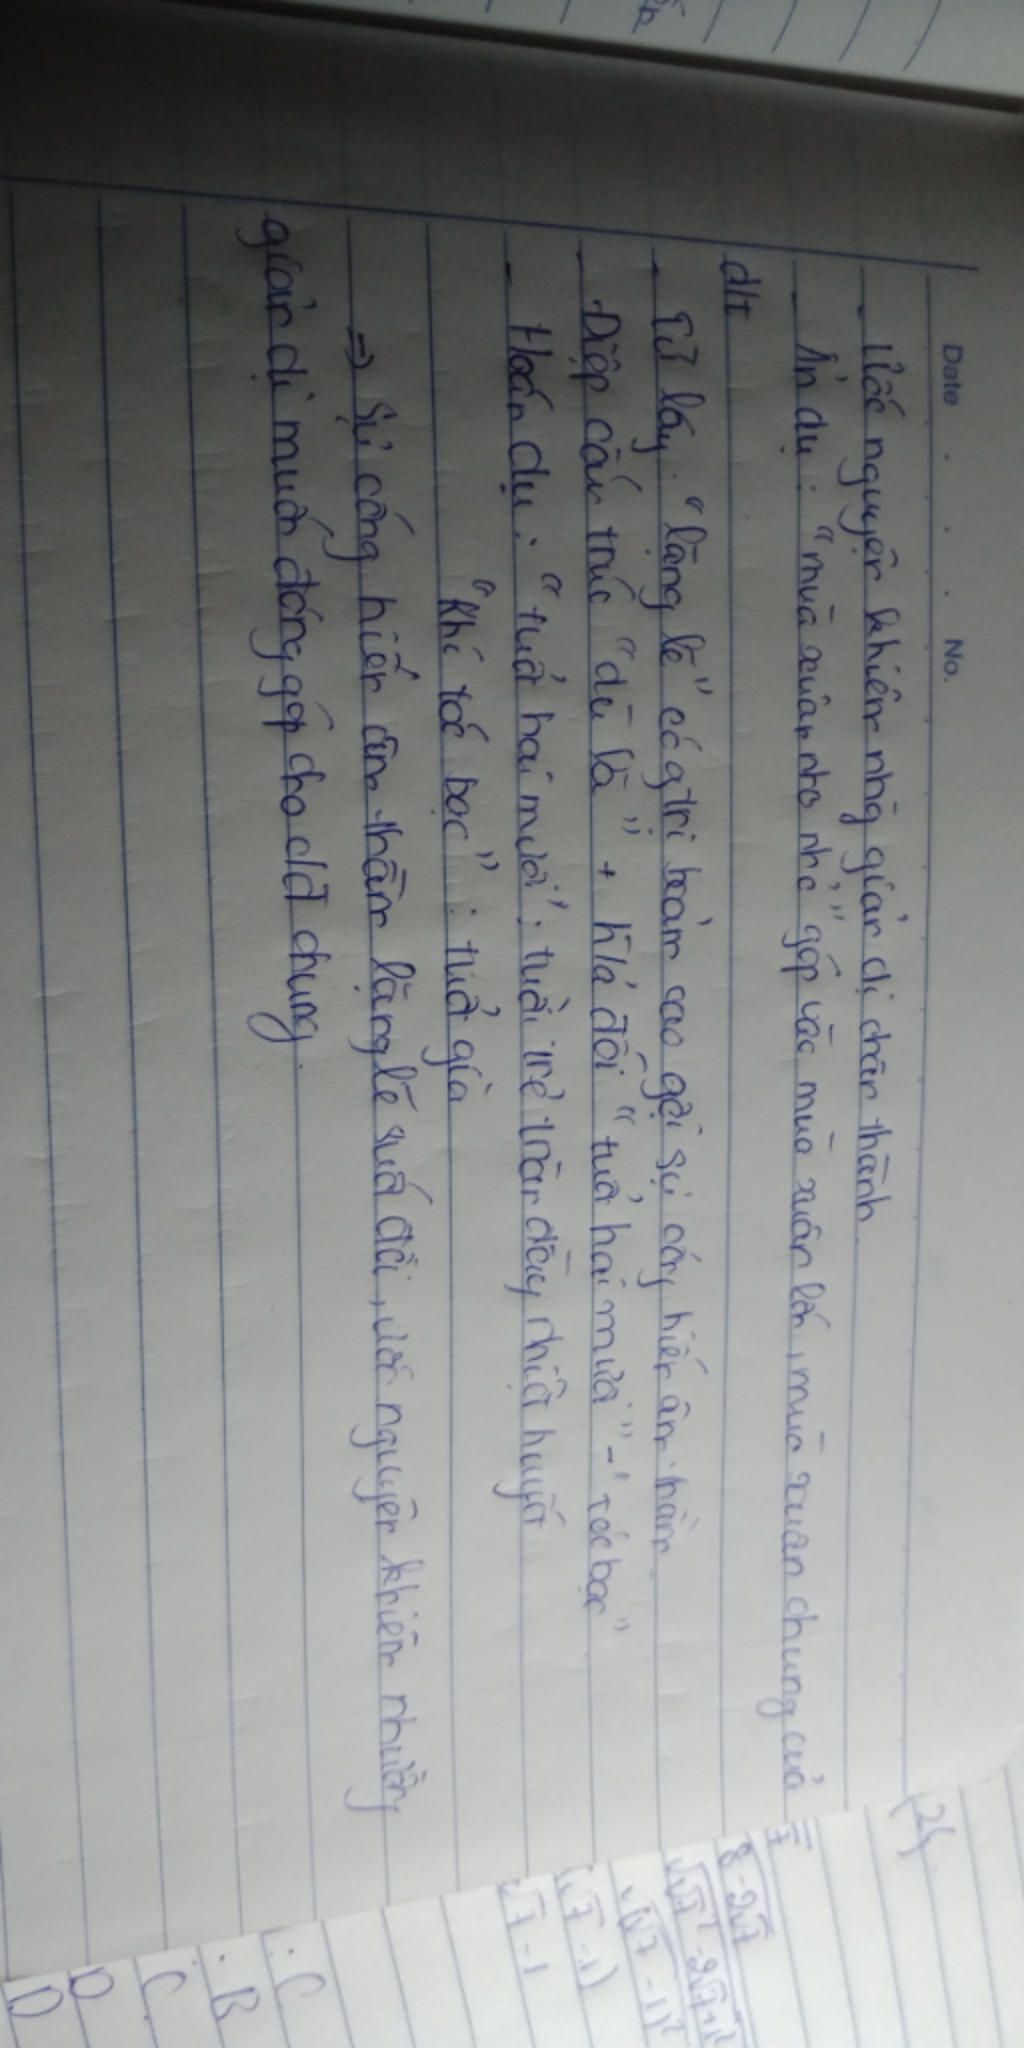 Date . . . No.
- Ước nguyện khiêm nhg giản dị chân thành
- Ẩn dụ : "mùa xuân nho nhỏ" góp vào mùa xuân lớn, mùa xuân chung của
đ/t
- Từ láy : "lặng lẽ" có gtrị bcảm cao gợi sự cống hiến âm thầm
- Điệp cấu trúc "dù là" + h/ả đối "tuổi hai mươi" - "tóc bạc"
- Hoán dụ : "tuổi hai mươi" : tuổi trẻ tràn đầy nhiệt huyết
"Khi tóc bạc" : tuổi già
=> Sự cống hiến âm thầm lặng lẽ suốt đời, ước nguyện khiêm nhường
giản dị muốn đóng góp cho cđ chung.
8-2√7
√7 - 1
: C
: B
C
D
D